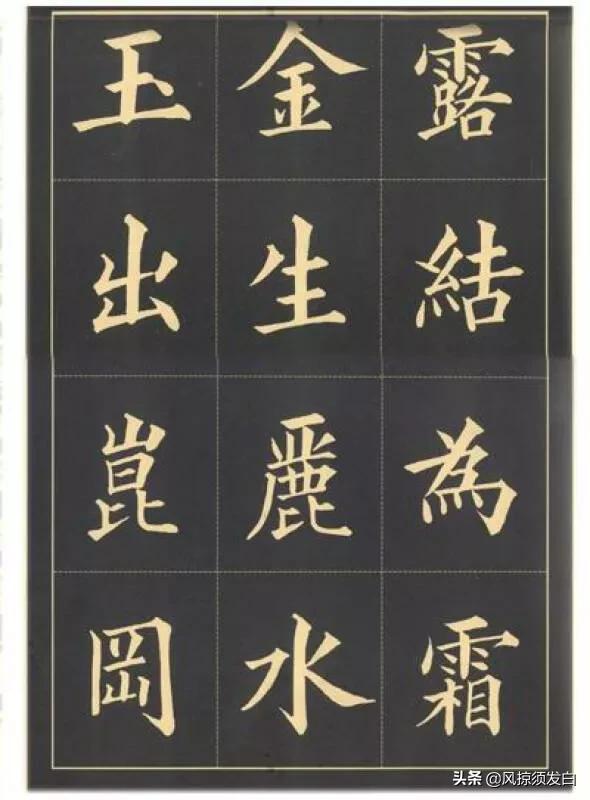 露結為霜
金生麗水
玉出崑岡
头条 @风掠须发白